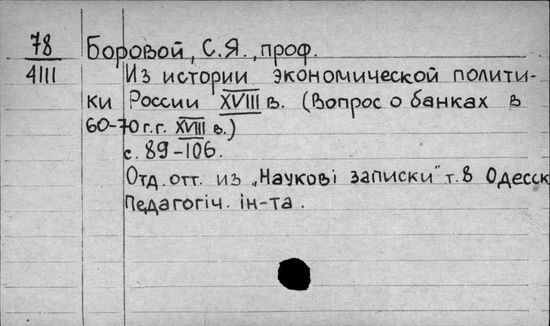 78
4III
Боровой, С.Я., проф.
Из истории экономической полити-
ки России XVIII в. (Вопрос о банках в
60-70 г.г. XVIII в.)
с. 89-106.
Отд. отт. из „Наукові записки" т. 8 Одесск
Педагогіч. ін-та.